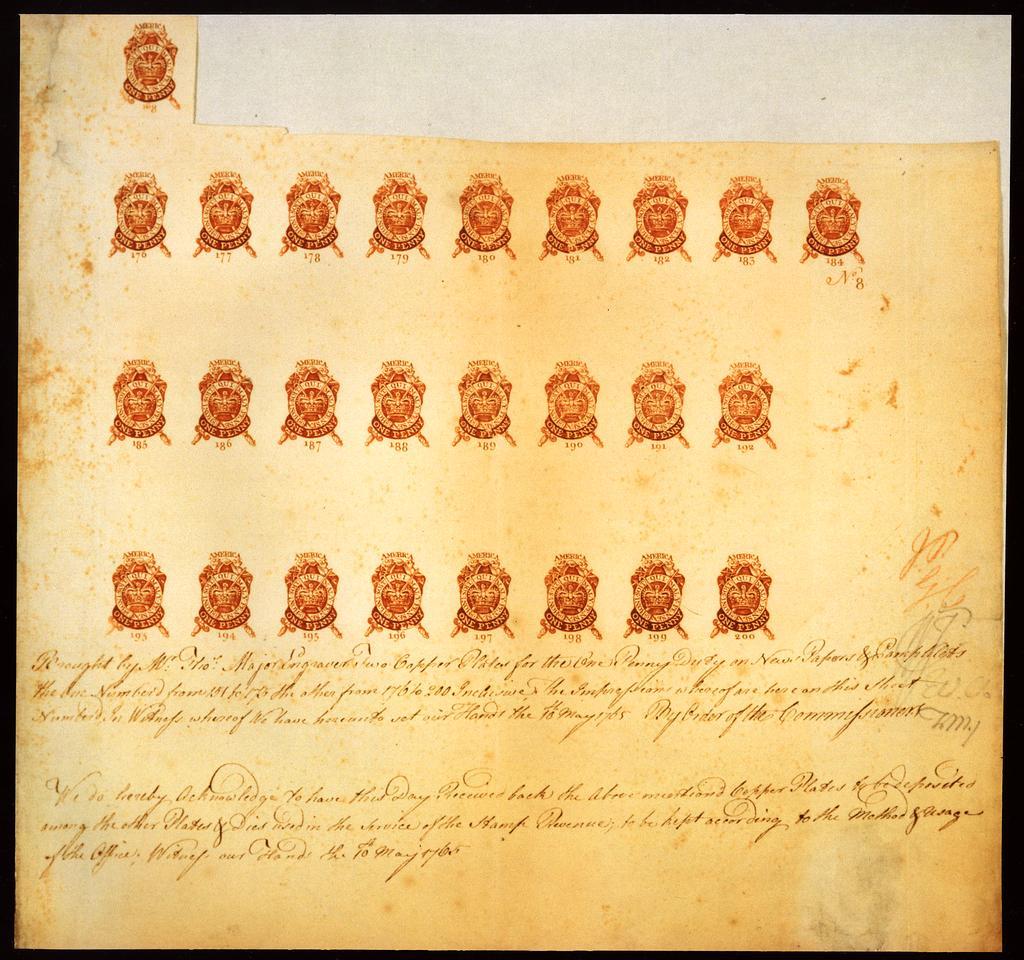 AMERICA
HONI SOIT QUI MAL Y PENSE
ONE PENNY
AMERICA AMERICA AMERICA AMERICA AMERICA AMERICA AMERICA AMERICA AMERICA
ONE PENNY ONE PENNY ONE PENNY ONE PENNY ONE PENNY ONE PENNY ONE PENNY ONE PENNY ONE PENNY
176 177 178 179 180 181 182 183 184
No. 8
AMERICA AMERICA AMERICA AMERICA AMERICA AMERICA AMERICA AMERICA
ONE PENNY ONE PENNY ONE PENNY ONE PENNY ONE PENNY ONE PENNY ONE PENNY ONE PENNY
185 186 187 188 189 190 191 192
AMERICA AMERICA AMERICA AMERICA AMERICA AMERICA AMERICA AMERICA
ONE PENNY ONE PENNY ONE PENNY ONE PENNY ONE PENNY ONE PENNY ONE PENNY ONE PENNY
193 194 195 196 197 198 199 200
Brought by Mr. Thos. Major Engraver Two Copper Plates for the One Penny Duty on News Papers & Pamphlets
the one Numberd from 151 to 175 the other from 176 to 200 Inclusive & the Impressions whereof are here on this Sheet
Numberd In Witness whereof We have hereunto set our Hands the May 1765 By Order of the Commissioners
We do hereby Acknowledge to have this Day Received back the above mentiond Copper Plates to be deposited
among the other Plates & Dies used in the Service of the Stamp Revenue; to be kept according to the Method & usage
of the Office; Witness our Hands the May 1765